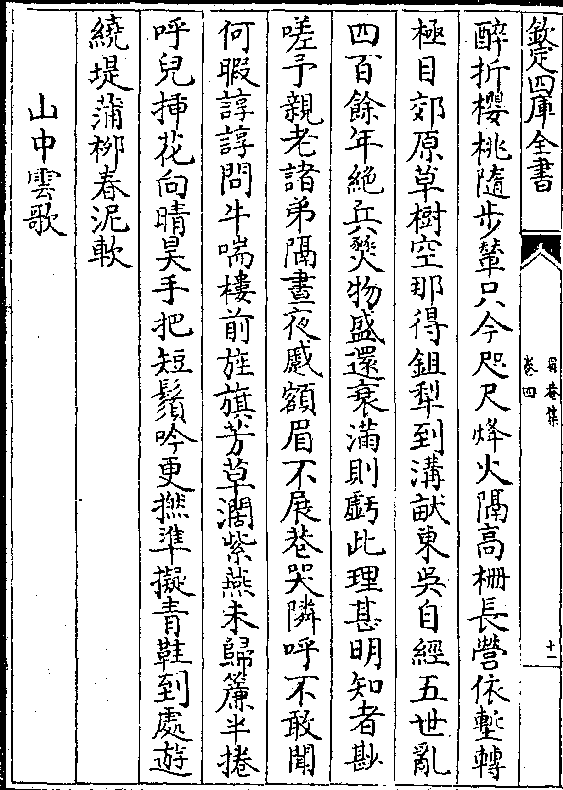 欽定四庫全書
眉菴集
卷四
十一
醉折櫻桃隨步輦只今咫尺烽火隔高柵長營依塹轉
極目郊原草樹空那得鉏犁到溝畎東吳自經五世亂
四百餘年絶兵燹物盛還衰滿則虧此理甚明知者尠
嗟予親老諸弟隔晝夜蹙額眉不展巷哭隣呼不敢聞
何暇諄諄問牛喘樓前旌旗芳草濶紫燕未歸簾半捲
呼兒挿花向晴昊手把短鬚吟更撚準擬青鞋到處遊
繞堤蒲柳春泥軟
山中雲歌